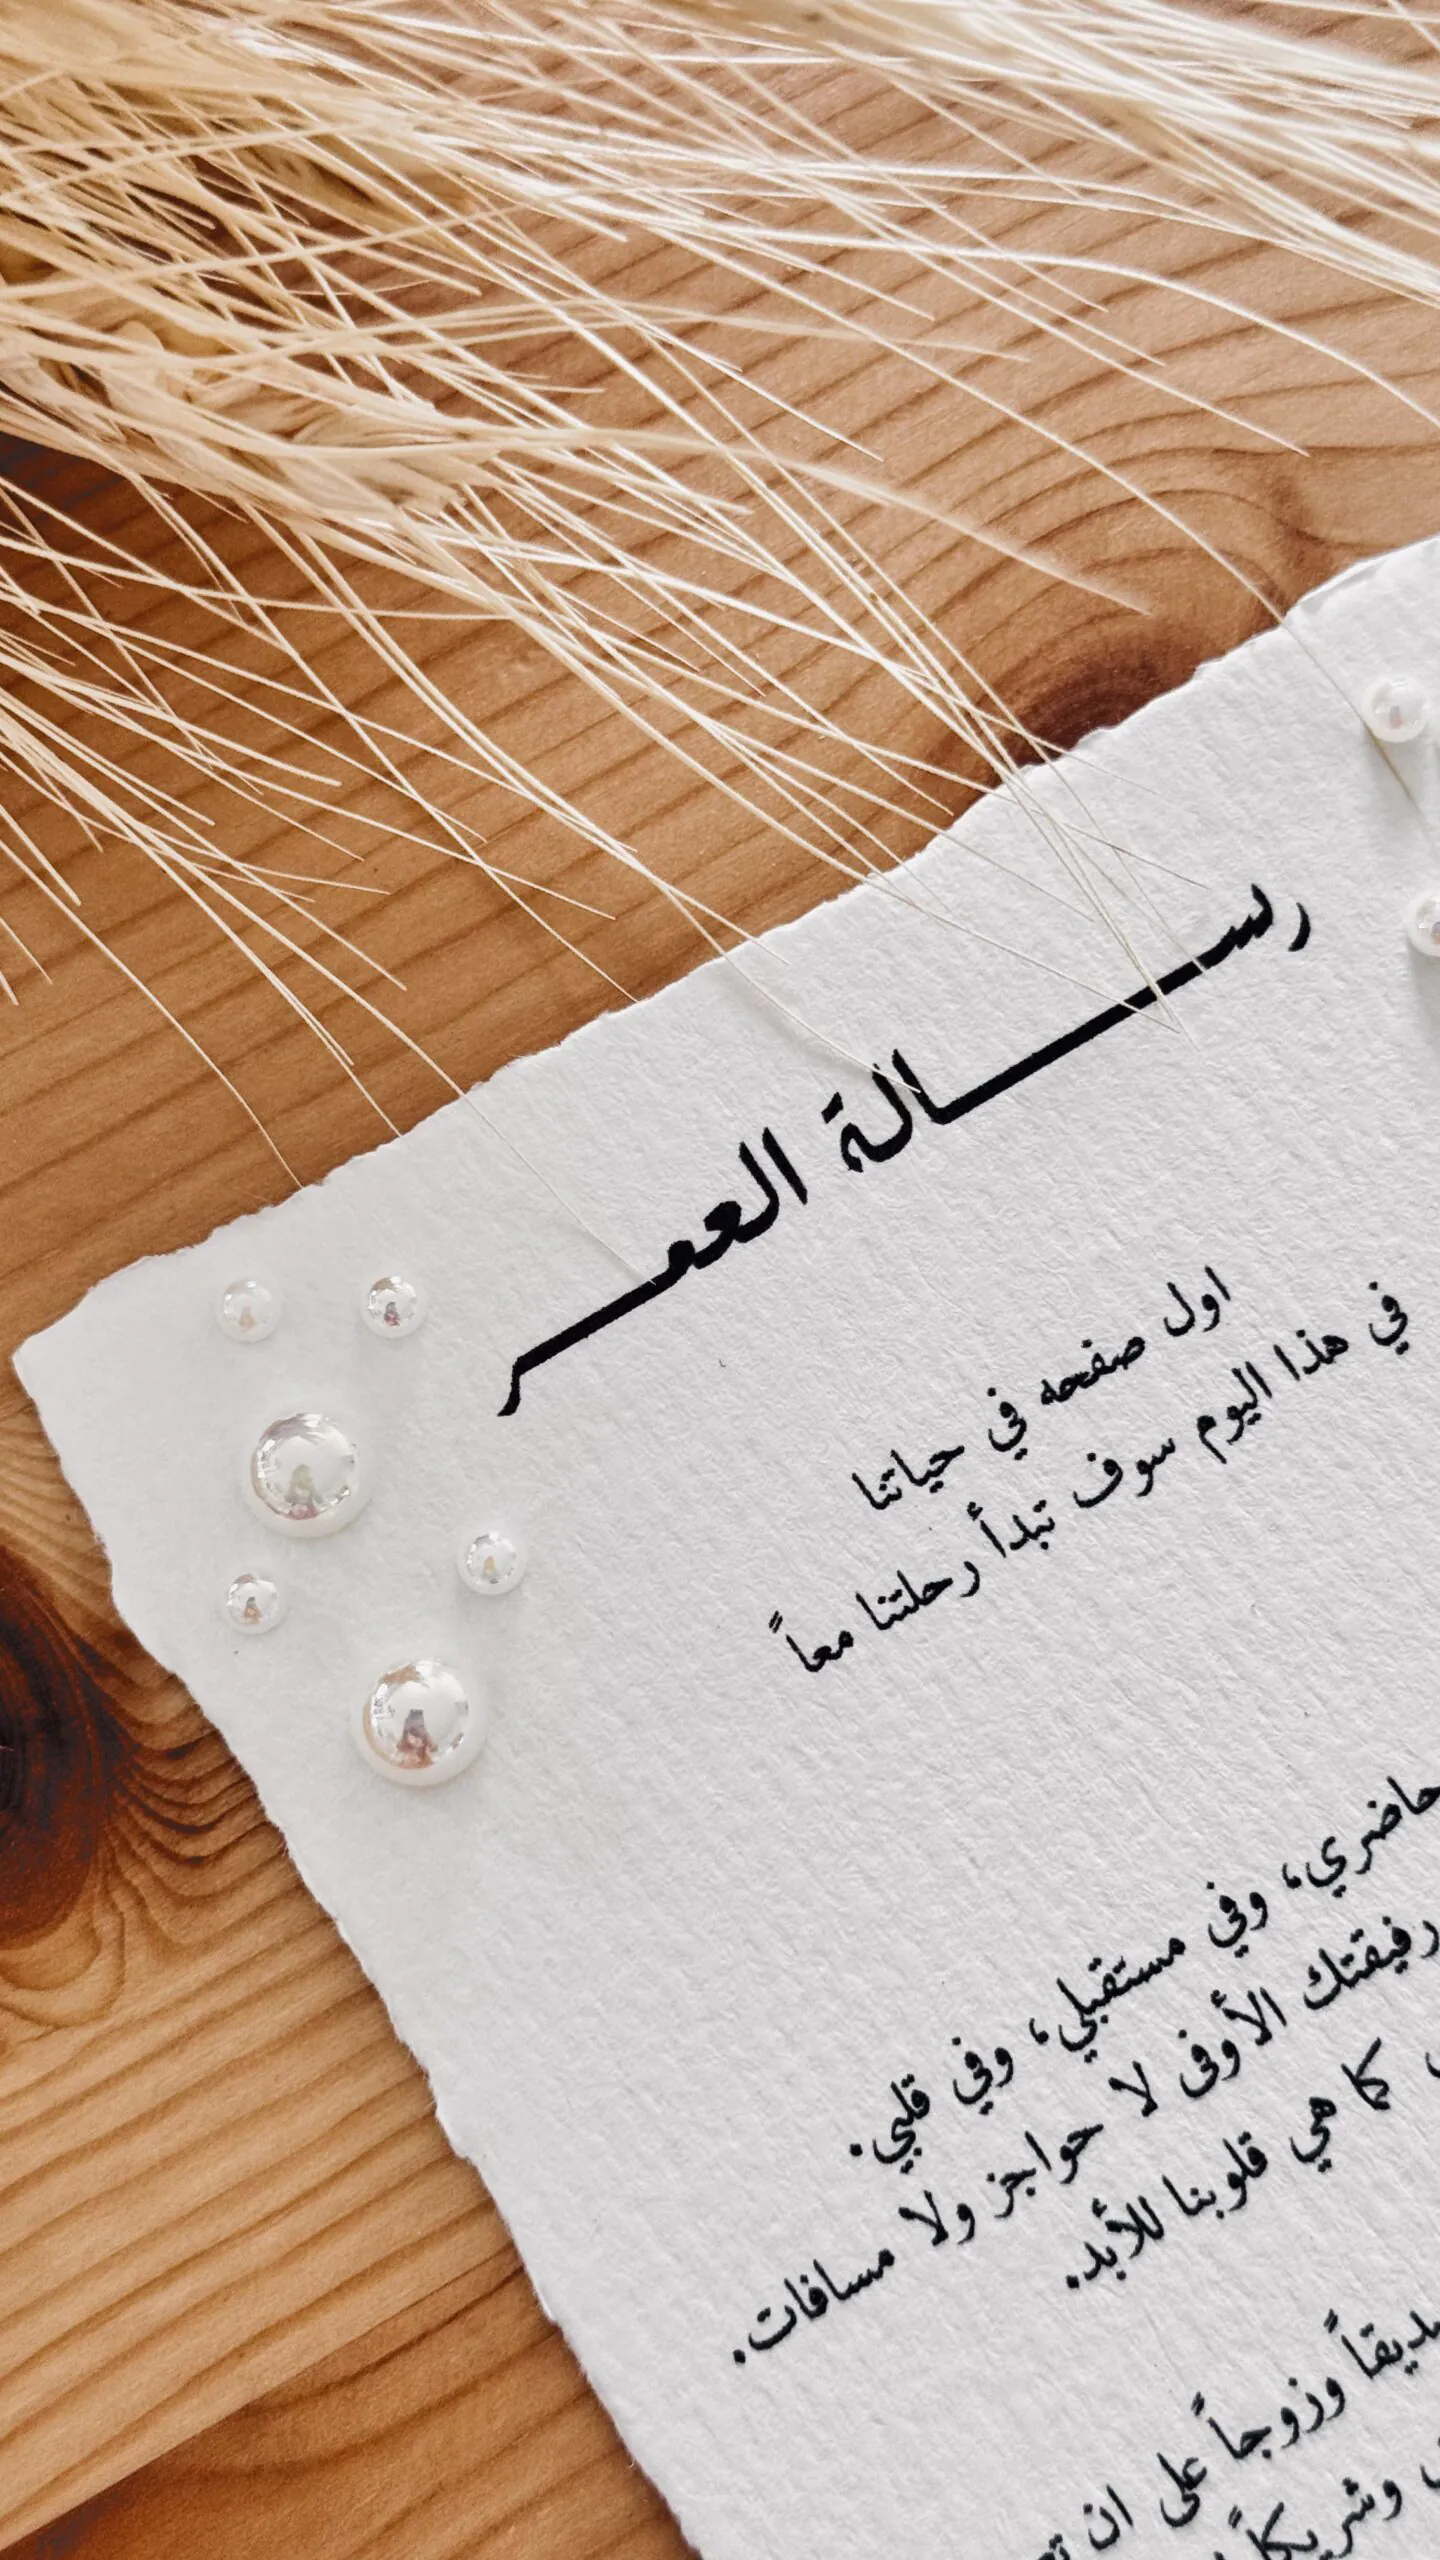 رســـالة العمـــر
اول صفحه في حياتنا
في هذا اليوم سوف تبدأ رحلتنا معاً
حاضري، وفي مستقبلي، وفي قلبي.
رفيقتك الأوفى لا حواجز ولا مسافات.
كما هي قلوبنا للأبد.
وزوجاً على ان